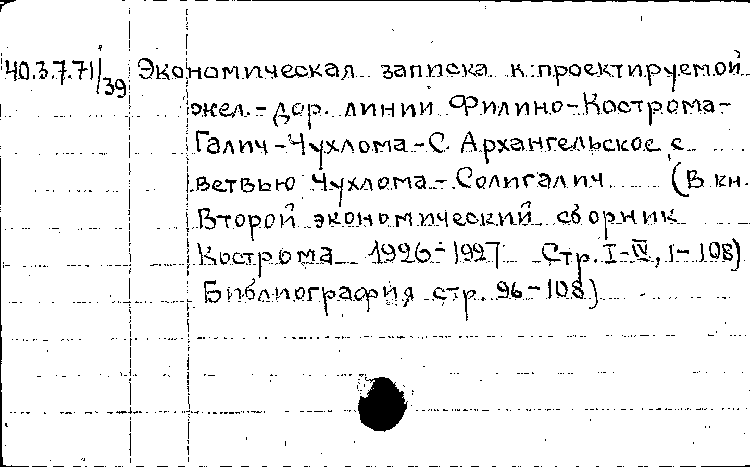 40.3.7.71/39 Экономическая записка к проектируемой
жел.-дор. линии Филино-Кострома-
Галич-Чухлома-С. Архангельское с
ветвью Чухлома-Солигалич (В кн.
Второй экономический сборник
Кострома 1926-1927 Стр. I-IV, 1-108)
Библиография стр. 96-108)